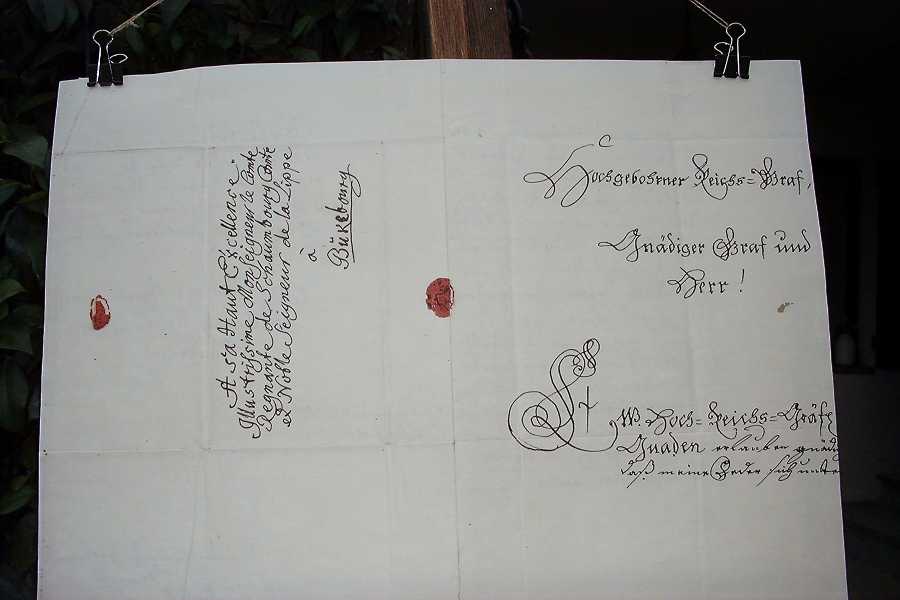 A Sa Haut Excellence
Illustrissime Monseigneur le Comte
Regnante de Schaumbourg Comte
et Noble Seigneur de la Lippe
à
Bükebourg
Hochgebohrner Reichs=Graf,
Gnädiger Graf und
Herr!
Ew. Hoch=Reichs=Gräfl
Gnaden erlauben gnädi
daß meine Feder sich unte